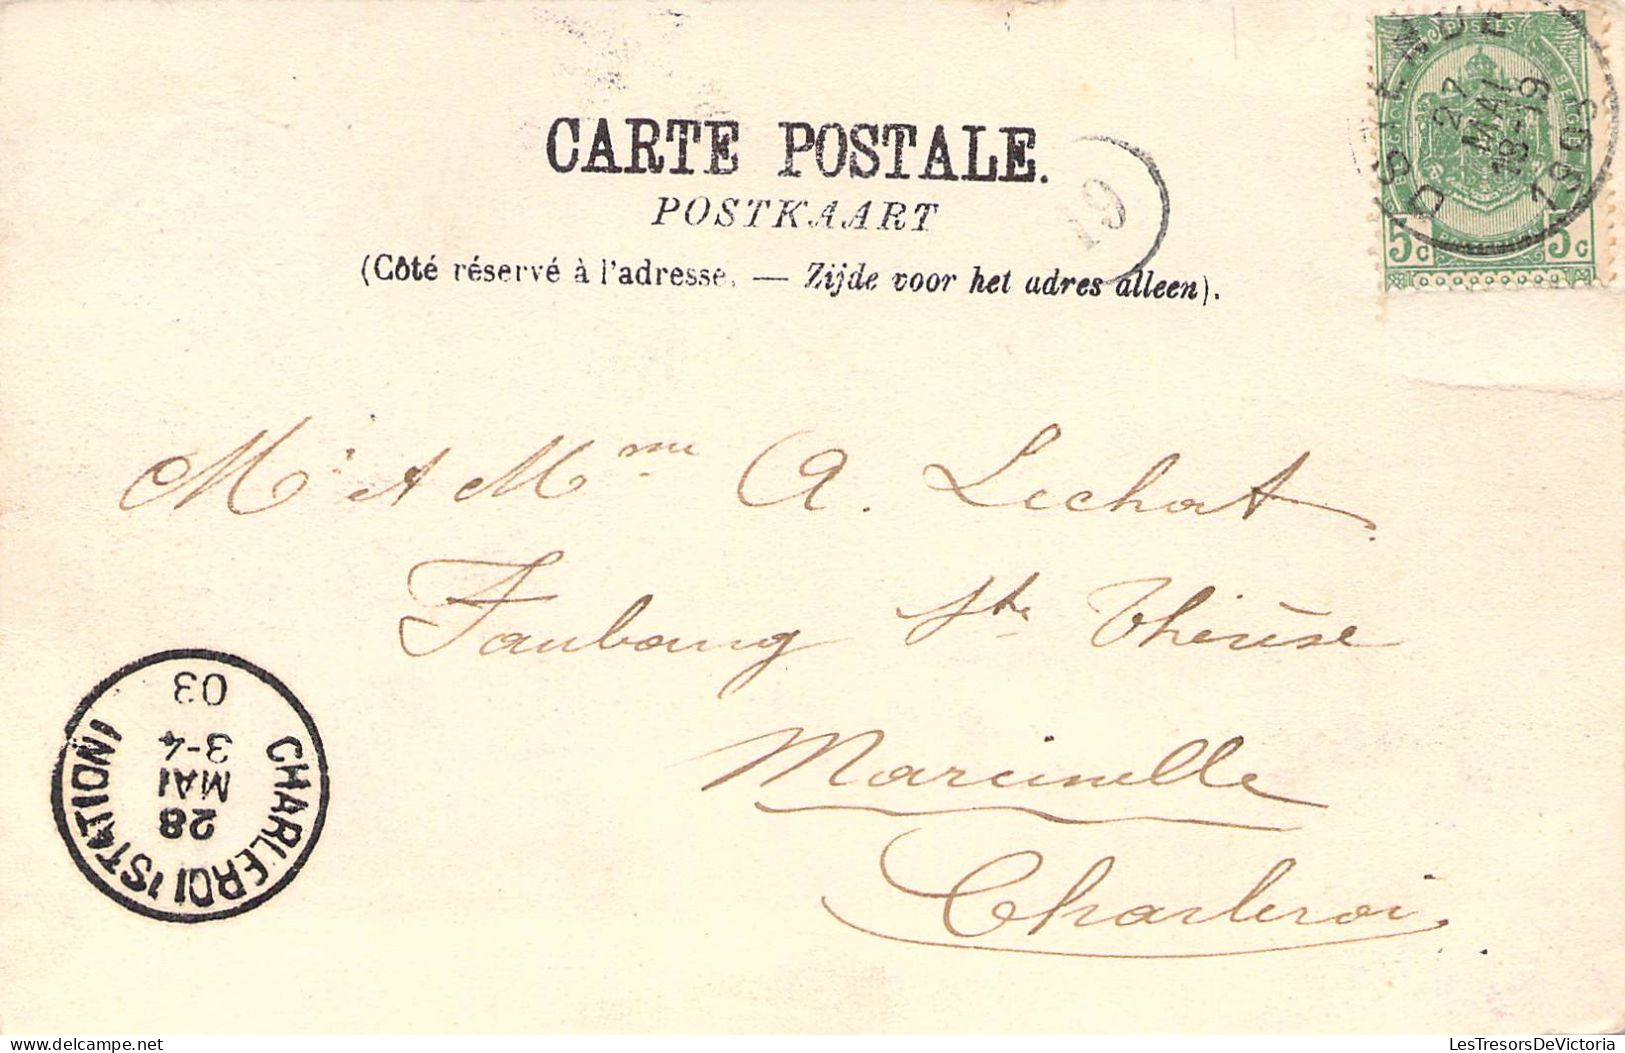 CARTE POSTALE.
POSTKAART
(Côté réservé à l'adresse. — Zijde voor het adres alleen).
19
POSTES
OSTENDE
27
MAI
18-19
1903
5c 5c
Mr et Mme A. Lechat
Faubourg Ste Thérèse
Marcinelle
Charleroi
CHARLEROI (STATION)
28
MAI
3-4
03
LesTresorsDeVictoria